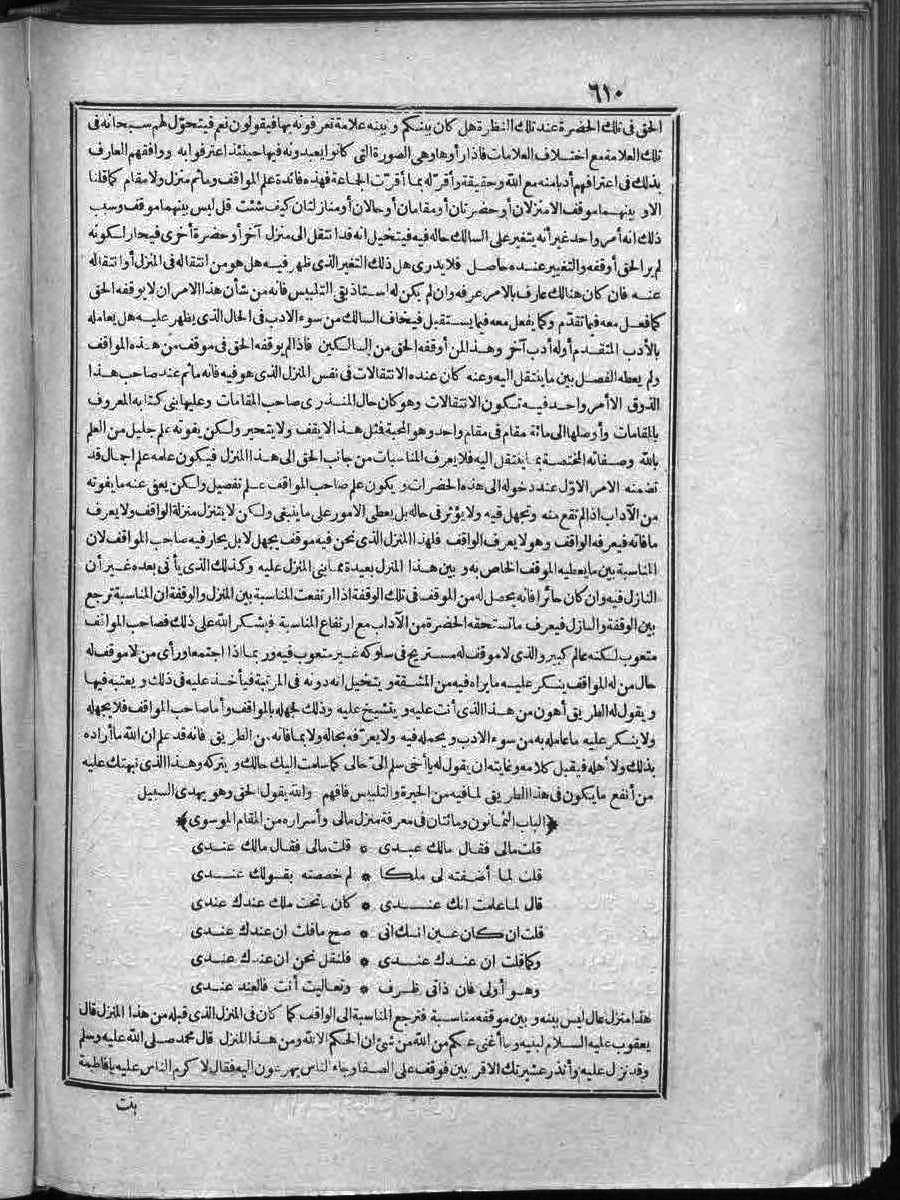 ٦١٠
الحق فى تلك الحضرة عند تلك النظرة هل كان بينكم وبينه علامة تعرفونه بها فيقولون نعم فيتحول لهم سبحانه فى
تلك العلامة مع اختلاف العلامات فاذا رأوها وهى الصورة التى كانوا يعبدونه فيها حينئذ اعترفوا به ووافقهم العارف
بذلك فى اعترافهم أدبا منه مع الله وحقيقة وأقر له بما أقرت الجماعة فهذه فائدة علم المواقف وما ثم منزل ولا مقام كما قلنا
الا وبينهما موقف الا منزلان أو حضرتان أو مقامان أو حالان أو منازلتان كيف شئت قل ليس بينهما موقف وسبب
ذلك انه أمر واحد غير أنه يتغير على السالك حاله فيه فيتخيل انه قد انتقل الى منزل آخر أو حضرة أخرى فيحار لكونه
لم ير الحق أوقفه والتغيير عنده حاصل فلا يدرى هل ذلك التغير الذى ظهر فيه هل هو من انتقاله فى المنزل أو انتقاله
عنه فان كان هنالك عارف بالامر عرفه وان لم يكن له استاذ بقى التلبيس فانه من شأن هذا الامر ان لا يوقفه الحق
كما فعل معه فيما تقدم وكما يفعل معه فيما يستقبل فيخاف السالك من سوء الادب فى الحال الذى يظهر عليه هل يعامله
بالأدب المتقدم أو له أدب آخر وهذا لمن أوقفه الحق من السالكين فاذا لم يوقفه الحق فى موقف من هذه المواقف
ولم يعطه الفصل بين ما ينتقل اليه وعنه كان عنده الانتقالات فى نفس المنزل الذى هو فيه فانه ما ثم عند صاحب هذا
الذوق الا أمر واحد فيه تكون الانتقالات وهو كان حال المنذرى صاحب المقامات وعليها بنى كتابه المعروف
بالمقامات وأوصلها الى مائة مقام فى مقام واحد وهو المحبة فمثل هذا لا يقف ولا يتحير ولكن يفوته علم جليل من العلم
بالله وصفاته المختصة بما ينتقل اليه فلا يعرف المناسبات من جانب الحق الى هذا المنزل فيكون علمه علم اجمال قد
تضمنه الامر الاول عند دخوله الى هذه الحضرات ويكون علم صاحب المواقف علم تفصيل ولكن يعفى عنه ما يفوته
من الآداب اذا لم تقع منه وتجهل فيه ولا يؤثر فى حاله بل يعطى الامور على ما ينبغى ولكن لا يتنزل منزلة الواقف ولا يعرف
ما فاته فيعرفه الواقف وهو لا يعرف الواقف فلهذا المنزل الذى نحن فيه موقف يجهل لا بل يحار فيه صاحب المواقف لان
المناسبة بين ما يعطيه الموقف الخاص به وبين هذا المنزل بعيدة مما بنى المنزل عليه وكذلك الذى يأتى بعده غير أن
النازل فيه وان كان حائرا فانه يحصل له من الموقف فى تلك الوقفة اذا ارتفعت المناسبة بين المنزل والوقفة ان المناسبة ترجع
بين الوقفة والنازل فيعرف ما تستحقه الحضرة من الآداب مع ارتفاع المناسبة فيشكر الله على ذلك فصاحب المواقف
متعوب لكنه عالم كبير والذى لا موقف له مستريح فى سلوكه غير متعوب فيه وربما اذا اجتمعا ورأى من لا موقف له
حال من له المواقف ينكر عليه ما يراه فيه من المشقة ويتخيل انه دونه فى المرتبة فيأخذ عليه فى ذلك ويعتبه فيها
ويقول له الطريق أهون من هذا الذى أنت عليه ويتشيخ عليه وذلك لجهله بالمواقف وأما صاحب المواقف فلا يجهله
ولا ينكر عليه ما عامله به من سوء الادب ويحمله فيه ولا يعرفه بحاله ولا بما فاته من الطريق فانه قد علم ان الله ما أراده
بذلك ولا أهله فيقبل كلامه وغايته ان يقول له يا أخى سلم الى حالى كما سلمت اليك حالك ويتركه وهذا الذى نبهتك عليه
من أنفع ما يكون فى هذا الطريق لما فيه من الحيرة والتلبيس فافهم والله يقول الحق وهو يهدى السبيل
﴿الباب الثمانون ومائتان فى معرفة منزل مالى وأسراره من المقام الموسوى﴾
قلت مالى فقال مالك عبدى * قلت مالى فقال مالك عندى
قلت لما أضفته لى ملكا * لم خصصته بقولك عندى
قال لما علمت انك عندى * كان ما تحت ملك عندك عندى
قلت ان كان عين انك انى * صح ما قلت ان عندك عندى
وكما قلت ان عندك عندى * فلنقل نحن ان عندك عندى
وهو أولى فان ذاتى ظرف * وتعاليت أنت فالعند عندى
هذا منزل عال ليس بينه وبين موقفه مناسبة فترجع المناسبة الى الواقف كما كان فى المنزل الذى قبله من هذا المنزل قال
يعقوب عليه السلام لبنيه وما أغنى عنكم من الله من شئ ان الحكم الا لله ومن هذا المنزل قال محمد صلى الله عليه وسلم
وقد نزل عليه وأنذر عشيرتك الاقربين فوقف على الصفا وجاء الناس يهرعون اليه فقال لا كرم الناس عليه يا فاطمة
بنت